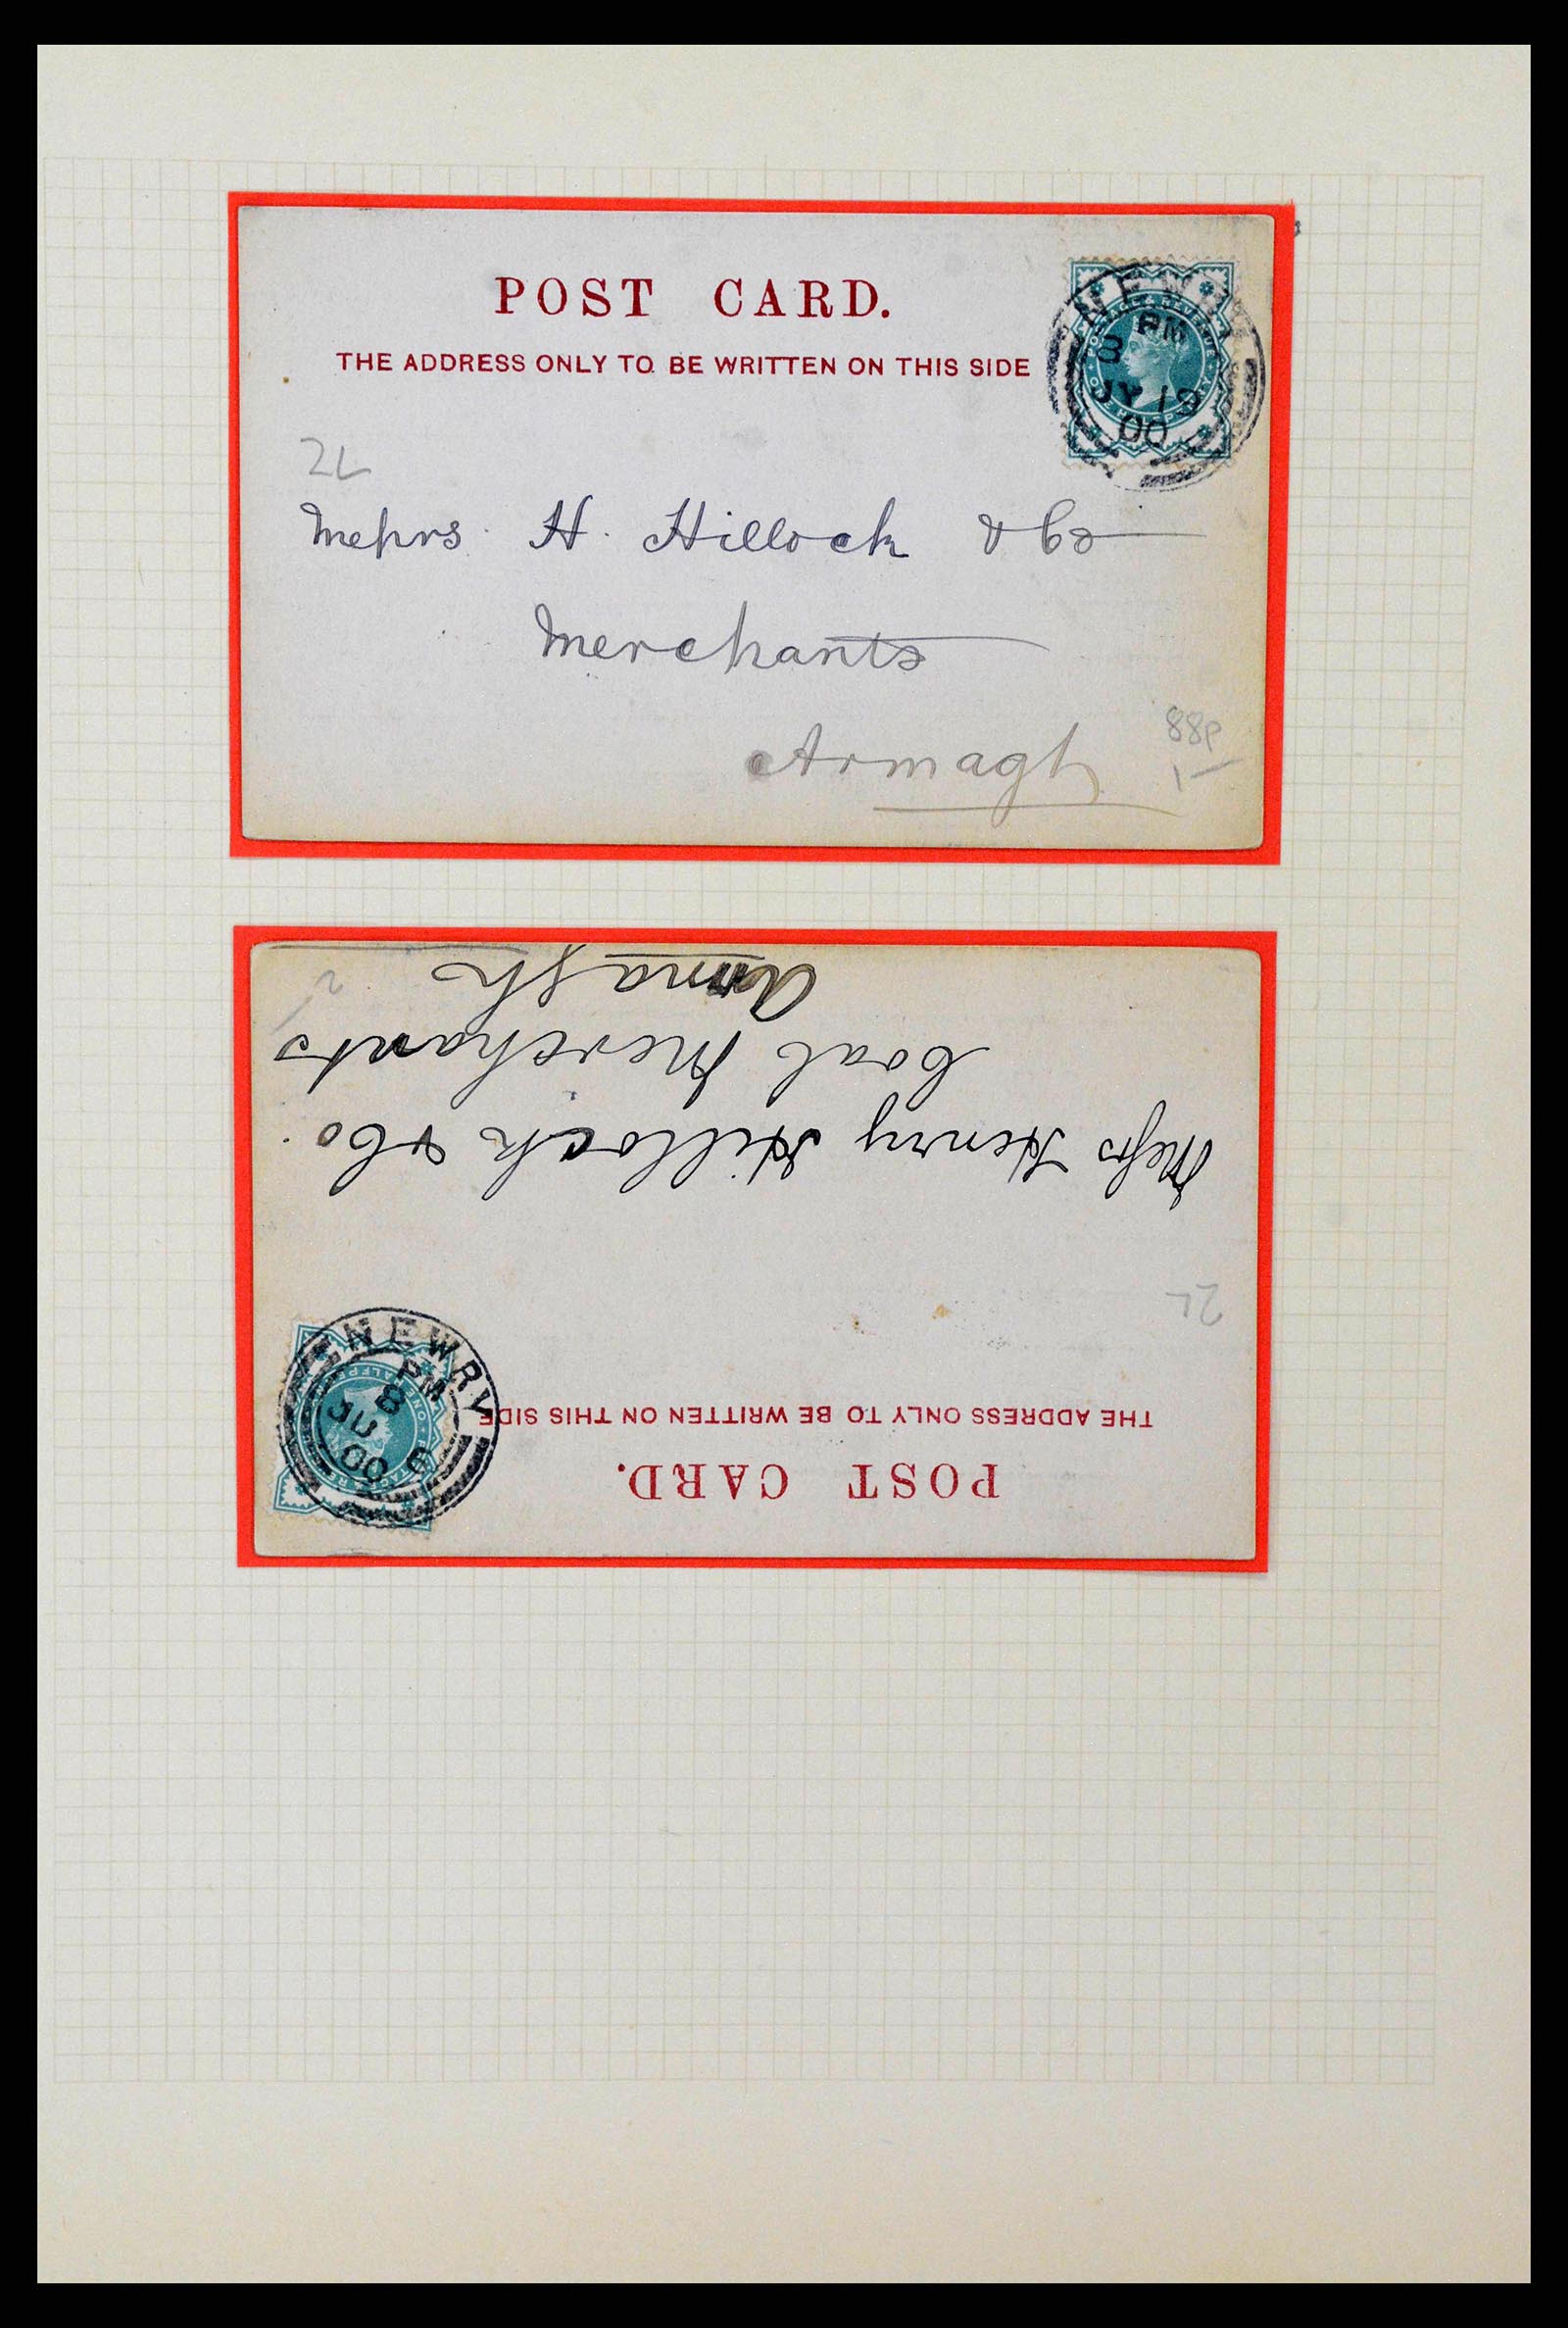 POST CARD.
THE ADDRESS ONLY TO BE WRITTEN ON THIS SIDE
NEWRY
PM
8
JY 19
00
POSTAGE & REVENUE
2L
Messrs. H. Hillock & Co
Merchants
Armagh
88P
1-
POST CARD.
THE ADDRESS ONLY TO BE WRITTEN ON THIS SIDE
NEWRY
PM
8
JU 6
00
2L
Messrs Henry Hillock & Co.
Coal Merchants
Armagh